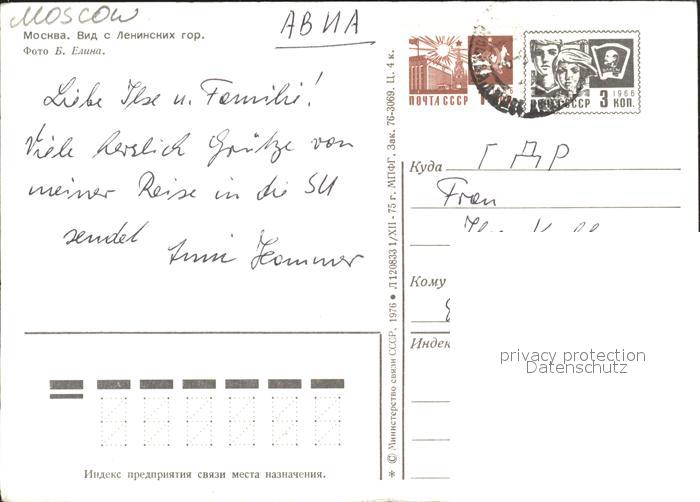 MOSCOW
АВИА
Москва. Вид с Ленинских гор.
Фото Б. Елина.
Liebe Ilse u. Familie!
Viele herzlich Grütze von
meiner Reise in die SU
sendet
Hammer
* © Министерство связи СССР, 1976 ● Л 120833 1/XII - 75 г. МПФГ. Зак. 76-3069. Ц. 4 к.
ПОЧТА СССР 1
ПОЧТА СССР 3 КОП.
1966
Куда ГДР
Frau
Кому
Индек
privacy protection
Datenschutz
Индекс предприятия связи места назначения.